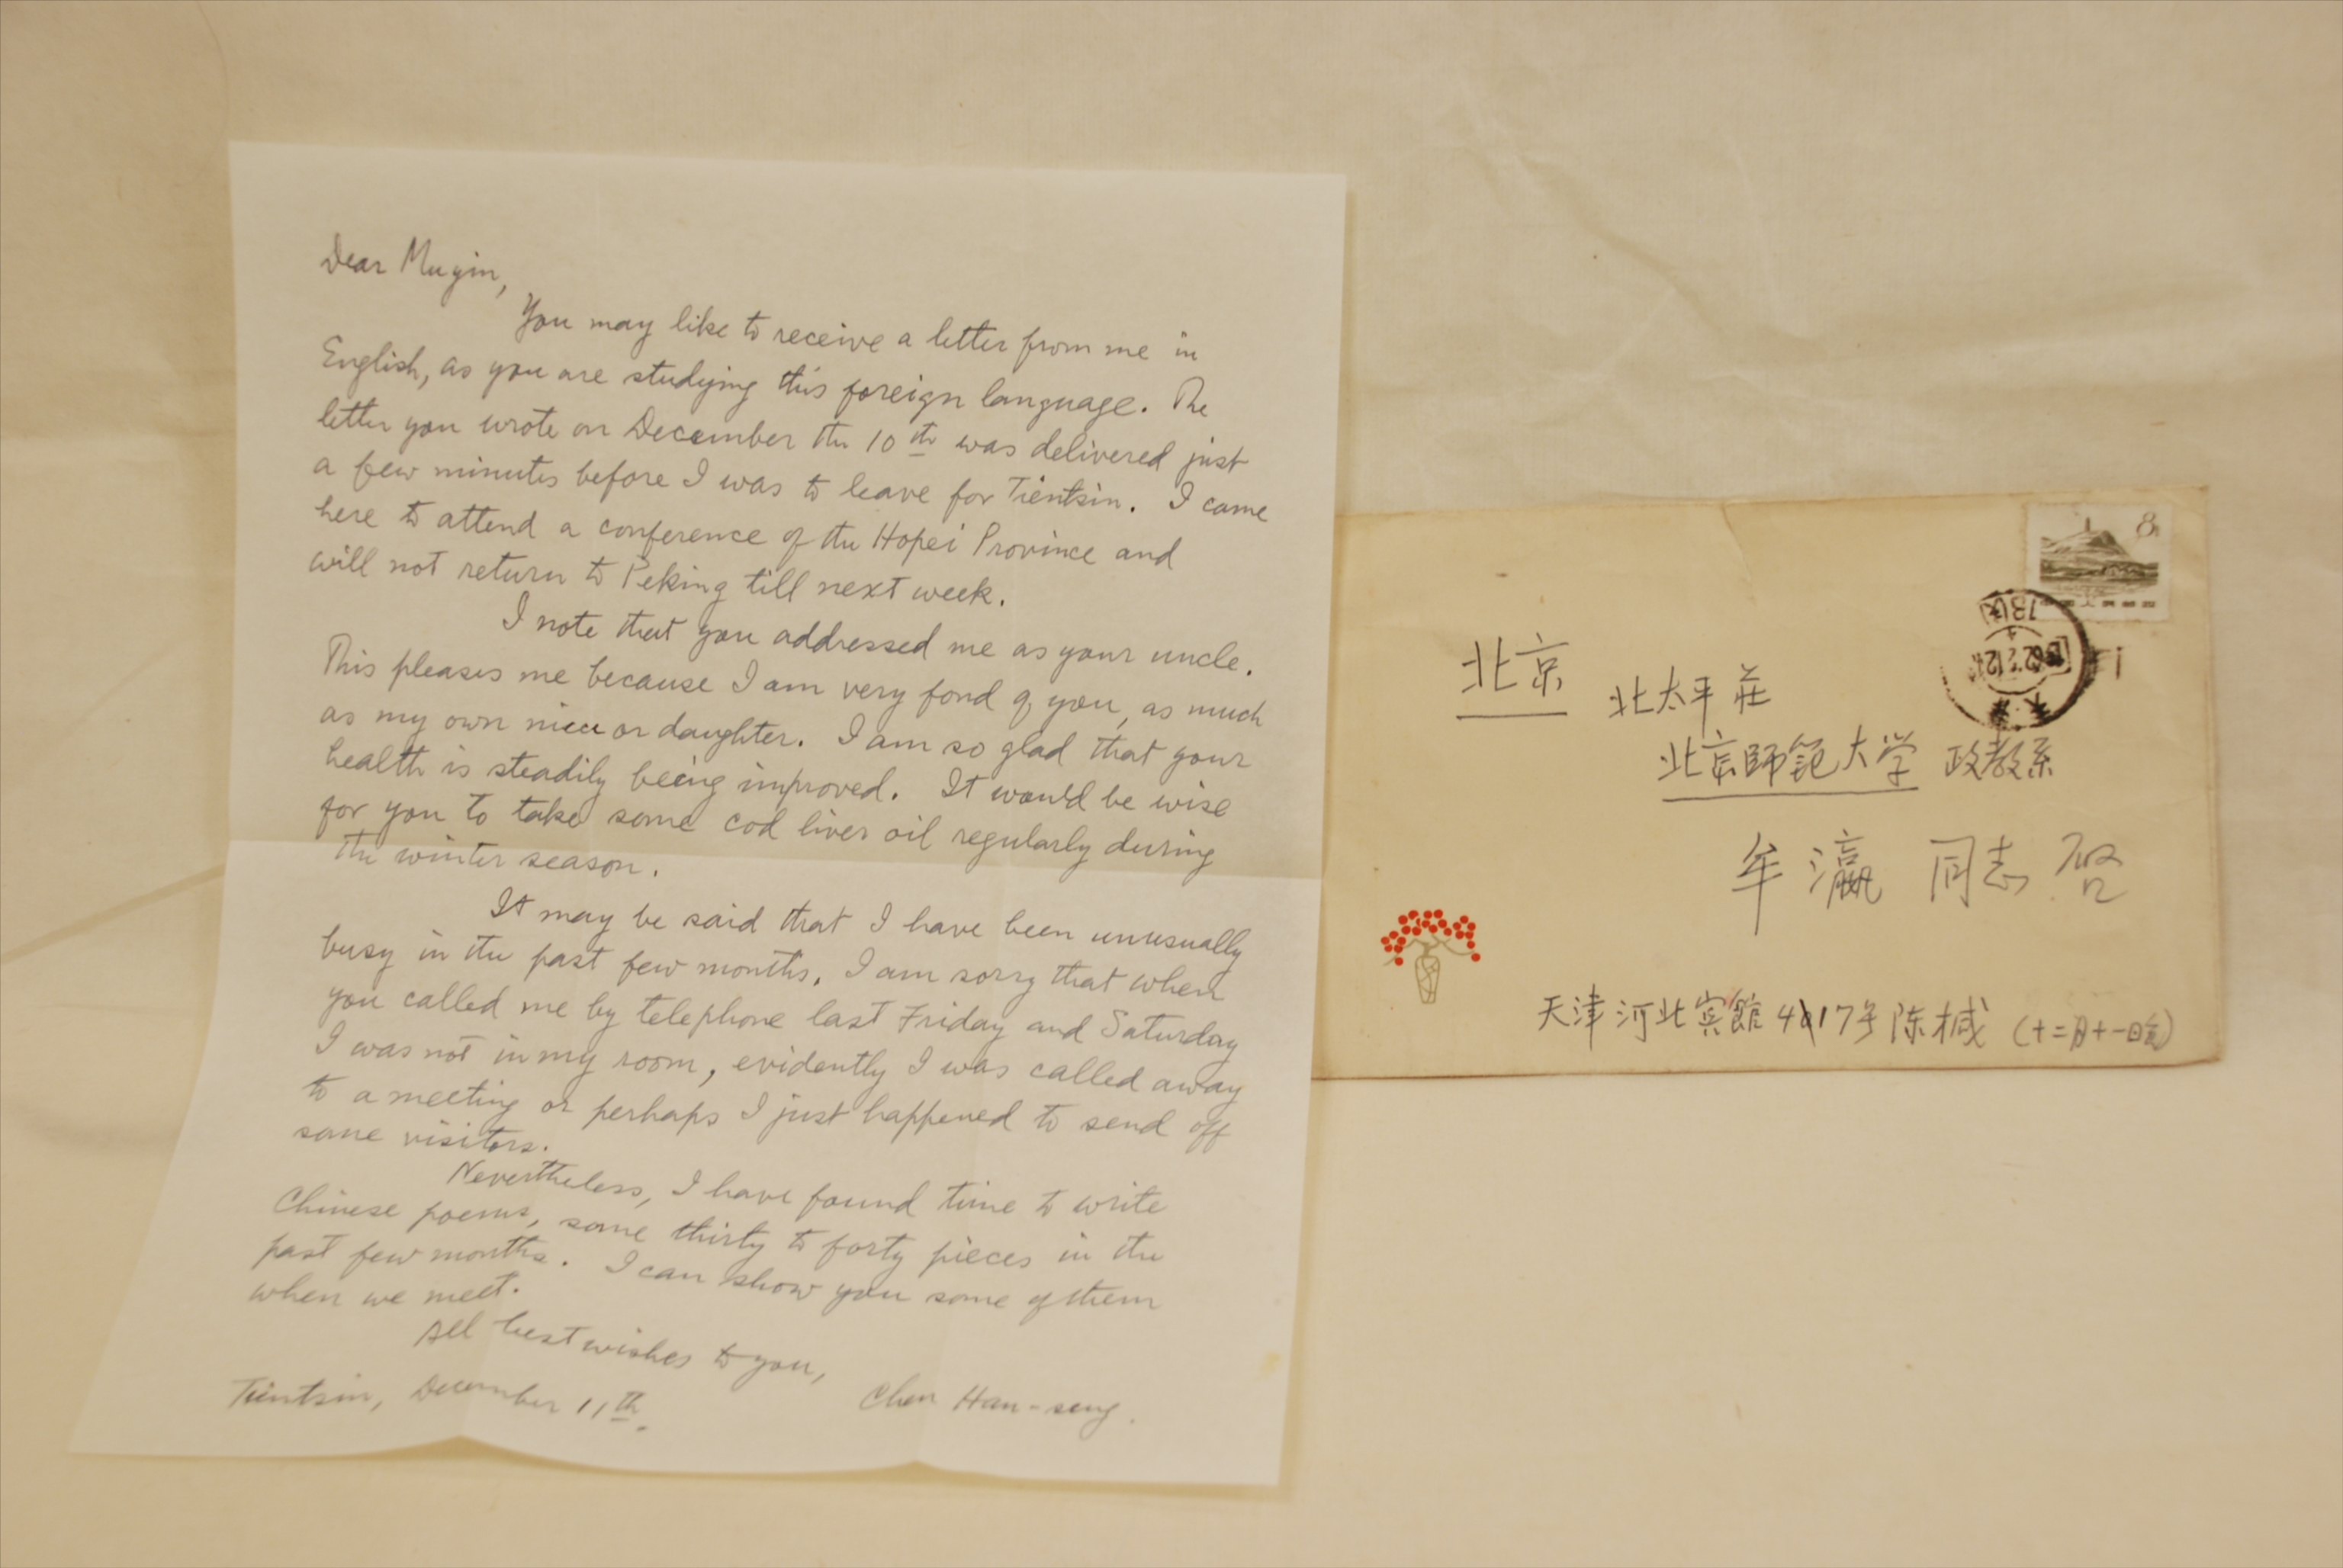 Dear Mugin,
You may like to receive a letter from me in
English, as you are studying this foreign language. The
letter you wrote on December the 10th was delivered just
a few minutes before I was to leave for Tientsin. I came
here to attend a conference of the Hopei Province and
will not return to Peking till next week.
I note that you addressed me as your uncle.
This pleases me because I am very fond of you, as much
as my own niece or daughter. I am so glad that your
health is steadily being improved. It would be wise
for you to take some cod liver oil regularly during
the winter season.
It may be said that I have been unusually
busy in the past few months. I am sorry that when
you called me by telephone last Friday and Saturday
I was not in my room, evidently I was called away
to a meeting or perhaps I just happened to send off
some visitors.
Nevertheless, I have found time to write
Chinese poems, some thirty to forty pieces in the
past few months. I can show you some of them
when we meet.
All best wishes to you,
Chen Han-seng.
Tientsin, December 11th.
8
北京 北太平莊
北京師範大学 政教系
牟瀛 同志 启
天津河北宾館 417号 陈椷 (十二月十一日)